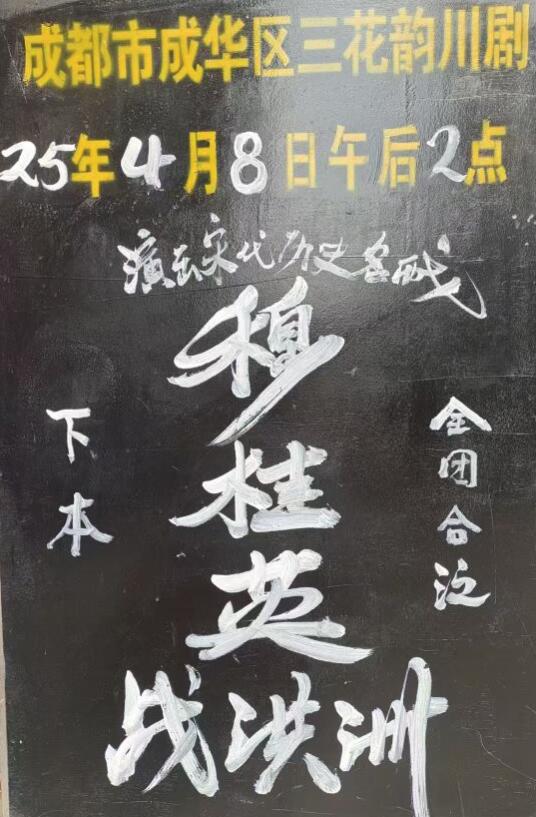 成都市成华区三花韵川剧
25年4月8日午后2点
演出宋代历史名戏
穆桂英
战洪洲
全团合泛
下本